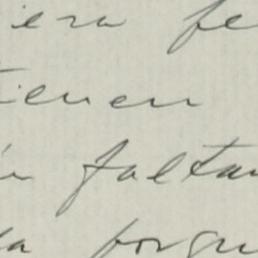 iera fe
ienen
n faltan
la porqu